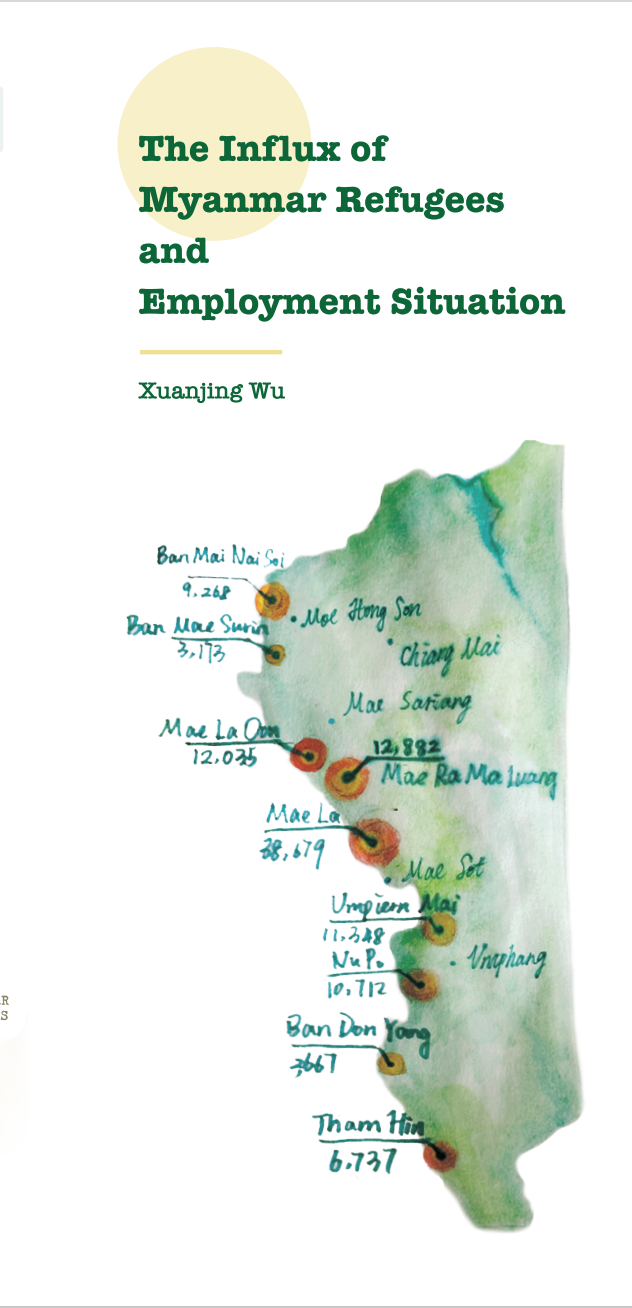 The Influx of
Myanmar Refugees
and
Employment Situation
Xuanjing Wu
Ban Mai Nai Soi
9,268
Ban Mae Surin
3,173
Mae Hong Son
Chiang Mai
Mae Sariang
Mae La Oon
12,035
12,882
Mae Ra Ma Luang
Mae La
38,679
Mae Sot
Umpiem Mai
11,348
Nu Po
10,712
Umphang
R
S
Ban Don Yang
Tham Hin
6,737